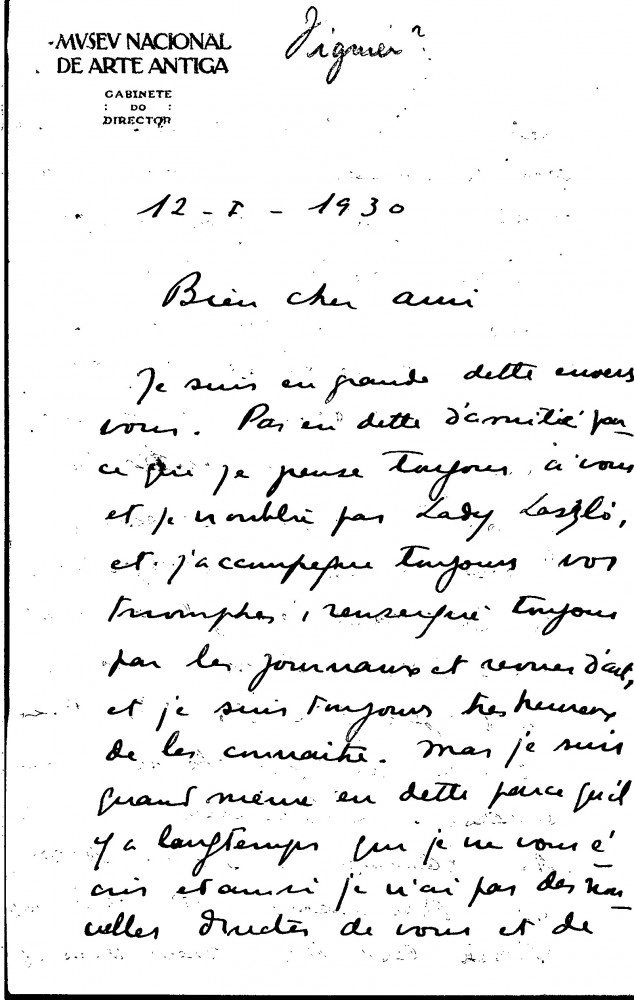 MVSEV NACIONAL
DE ARTE ANTIGA
GABINETE
: DO :
DIRECTOR
12 - I - 1930
Bien cher ami
Je suis en grande dette envers
vous. Pas en dette d'amitié par_
ce que je pense toujours à vous
et je n'oublie pas Lady László,
et j'accompagne toujours vos
triomphes, renseigné toujours
par les journaux et revues d'art,
et je suis toujours très heureux
de les connaître. Mas je suis
quand même en dette parce qu'il
y a longtemps que je ne vous é
cris et aussi je n'ai pas des nou_
velles directes de vous et de